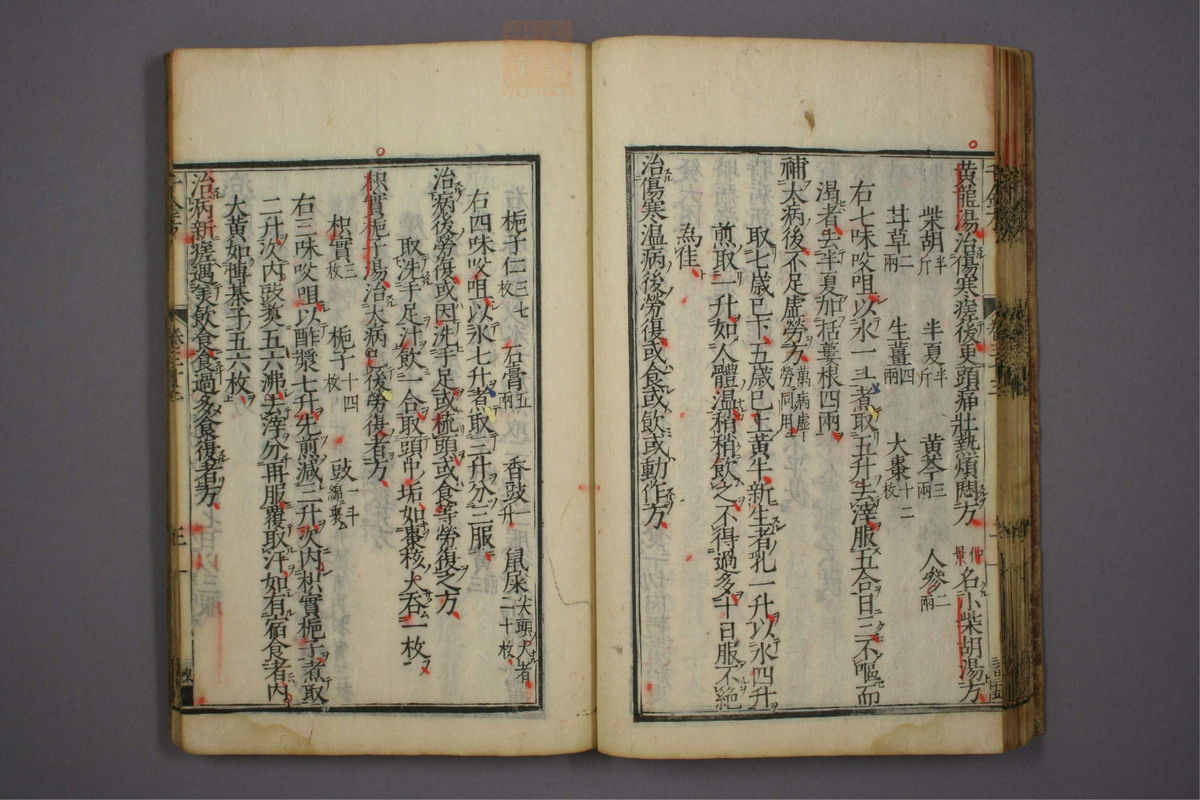 黄龍湯治傷寒瘥後更頭痛壯熱煩悶方 仲景名小柴胡湯方
柴胡半斤 半夏半升 黄芩三兩 人參二兩
甘草二兩 生薑四兩 大棗十二枚
右七味㕮咀以水一斗煮取五升去滓服五合日三不嘔而
渴者去半夏加栝蔞根四兩
補大病後不足虚勞方 萬病虚勞同用
取七歳已下五歳已上黄牛新生者乳一升以水四升
煎取一升如人體温稍稍飲之不得過多十日服不絶
為佳
治傷寒温病後勞復或食或飲或動作方
梔子仁三七枚 石膏五兩 香豉一升 鼠屎尖頭大者二十枚
右四味㕮咀以水七升煮取三升分三服
治病後勞復或因洗手足或梳頭或食等勞復之方
取洗手足汁飲一合取頭中垢如棗核大吞一枚
枳實梔子湯治大病已後勞復者方
枳實三枚 梔子十四枚 豉一升綿裹
右三味㕮咀以酢漿七升先煎減三升次内枳實梔子煮取
二升次内豉煮五六沸去滓分再服覆取汗如有宿食者内
大黄如博碁子五六枚
治病新瘥遇美飲食食過多食復者方